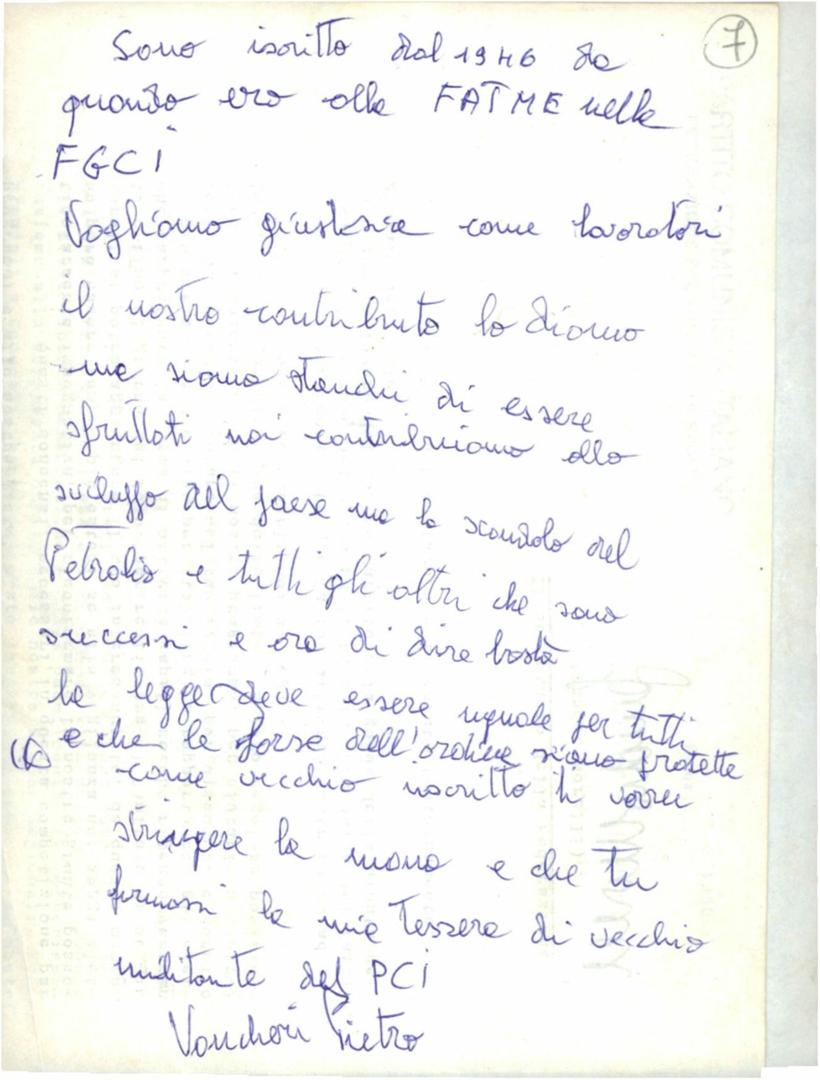 7
Sono iscritto dal 1946 da
quando ero alla FATME nella
FGCI
Vogliamo giustizia come lavoratori
il nostro contributo lo diamo
ma siamo stanchi di essere
sfruttati noi contribuiamo allo
sviluppo del paese ma lo scandalo del
Petrolio e tutti gli altri che sono
successi e ora di dire basta
la legge deve essere uguale per tutti
e che le forse dell'ordine siano protette
come vecchio iscritto ti vorrei
stringere la mano e che tu
firmassi la mia Tessera di vecchio
militante del PCI
Pietro